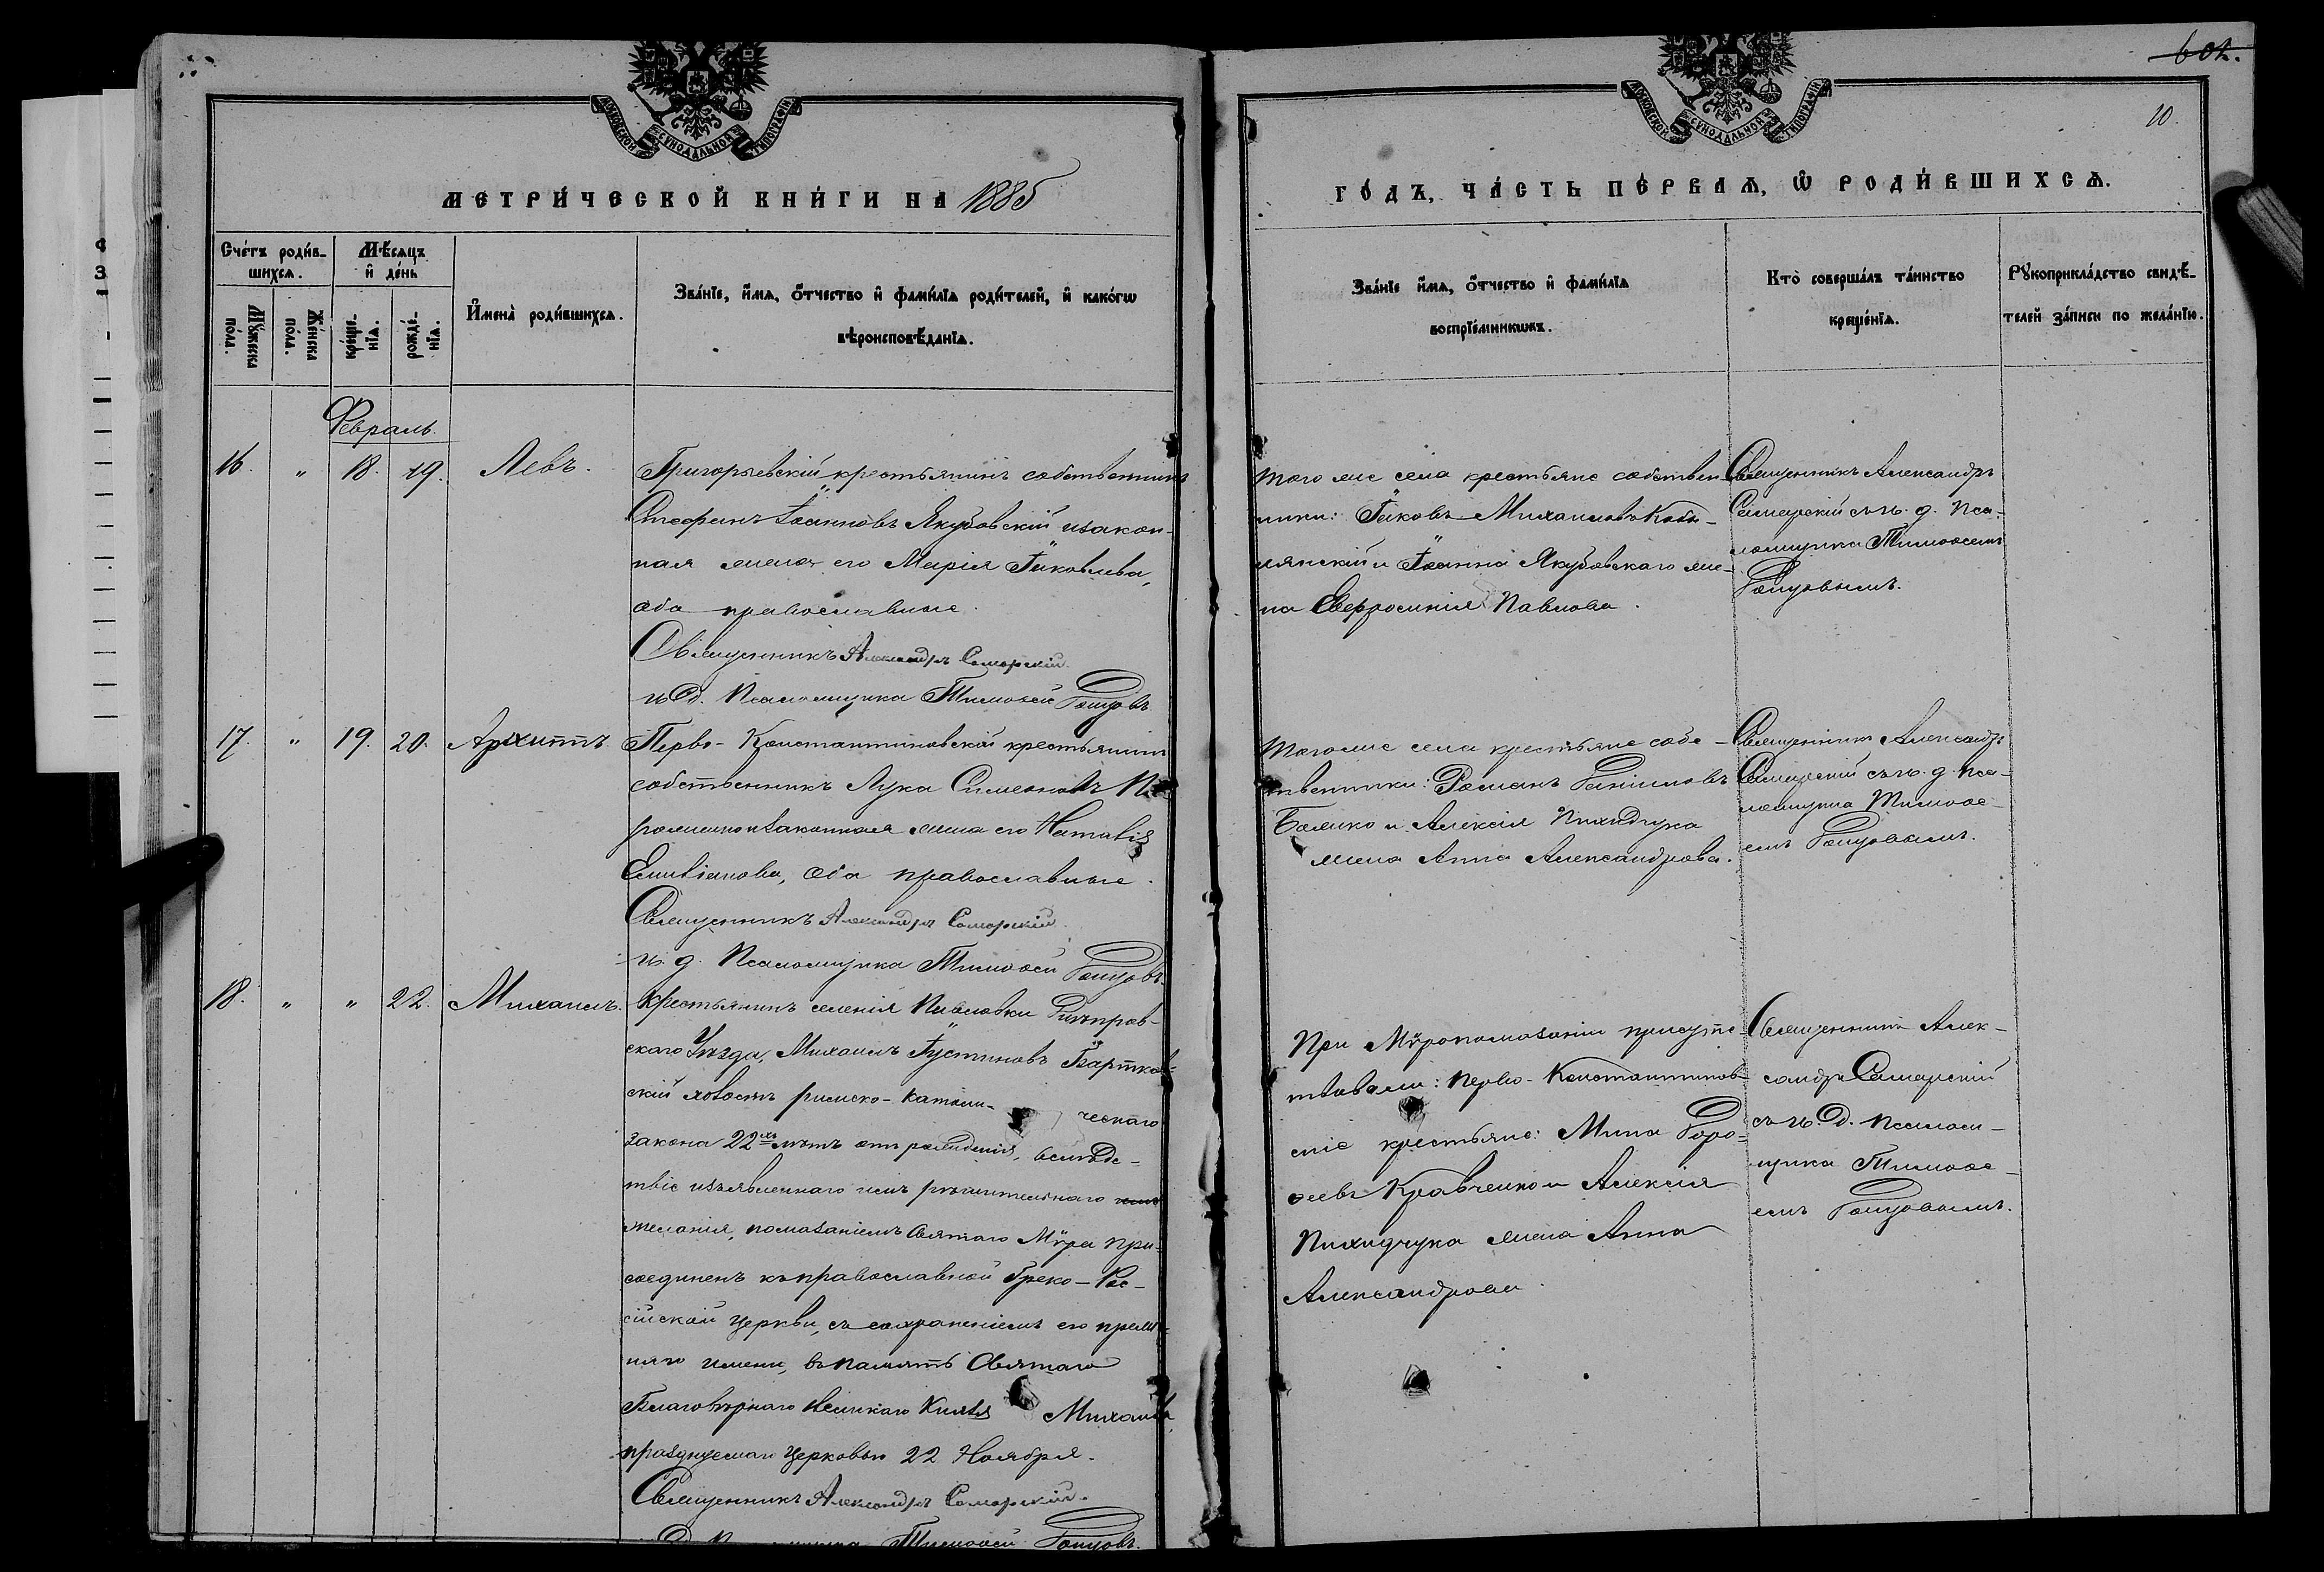 МОСКОВСКОЙ СѴНОДАЛЬНОЙ ТИПОГРАФІИ
МЕТРИ́ЧЕСКОЙ КНИ́ГИ НА 1885
Сче́тъ роди́в-
шихсѧ.
Мѣ́сѧцъ
и҆ де́нь
Мꙋ́жеска
по́ла.
Же́нска
по́ла.
креще́-
нїѧ.
рожде́-
нїѧ.
И҆мена̀ роди́вшихсѧ.
Зва́нїе, и҆́мѧ, ѻ҆́тчество и҆ фами́лїѧ роди́телей, и҆ како́гѡ
вѣроисповѣ́данїѧ.
Февраль.
16. " 18. 19. Левъ.
Григорьевскій крестьянинъ собственникъ
Стефанъ Іоанновъ Якубовскій и закон-
ная жена его Марія Іаковлева,
оба православные.
Священникъ Александръ Самарскій
и. д. Псаломщика Тимоѳей
17. " 19. 20. Архиппъ.
Перво-Константиновскій крестьянинъ
собственникъ Лука Симеоновъ
и законная жена его Наталія
Емиліанова, оба православные.
Священникъ Александръ Самарскій
и. д. Псаломщика Тимоѳей
18. " " 22. Михаилъ.
Крестьянинъ селенія Павловки
скаго Уѣзда, Михаилъ Іустиновъ Бартков-
скій холостъ римско-католи-ческаго
закона 22хъ лѣтъ отъ рожденія, вслѣдс-
твіе изъявленнаго имъ рѣшительнаго
желанія, помазаніемъ Святаго Мѵра при-
соединенъ къ православной Греко-Рос-
сійской церкви, съ сохраненіемъ его преж-
няго имени, въ память Святаго
Благовѣрнаго Великаго Князя Михаила
празднуемаго Церковью 22 Ноября.
Священникъ Александръ Самарскій.
Тимоѳей
604.
10.
МОСКОВСКОЙ СѴНОДАЛЬНОЙ ТИПОГРАФІИ
ГО́ДЪ, ЧА́СТЬ ПЕ́РВАѦ, Ѡ҆ РОДИ́ВШИХСѦ.
Зва́нїе и҆́мѧ, ѻ҆́тчество и҆ фами́лїѧ
воспрїе́мникѡвъ.
Кто̀ соверша́лъ та́инство
креще́нїѧ.
Рꙋкоприкла́дство свидѣ́-
телей за́писи по жела́нїю.
того же села крестьяне собствен-
ники: Іаковъ Михаиловъ
и Іоанна Якубовскаго же-
на Евфросинія Павлова.
Священникъ Александръ
Самарскій съ и. д. Пса-
ломщика Тимоѳеемъ
того же села крестьяне собс-
твенники: Романъ Даніиловъ
и Алексія Пихидчука
жена Анна Александрова.
Священникъ Александръ
Самарскій съ и. д. пса-
ломщика Тимоѳе-
емъ
При Мѵропомазаніи присутс-
твовали: Перво-Константинов-
скіе крестьяне: Мина Доро-
ѳеевъ Кравченко и Алексія
Пихидчука жена Анна
Александрова
Священникъ Алек-
сандръ Самарскій
съ и. д. псалом-
щика Тимоѳе-
емъ